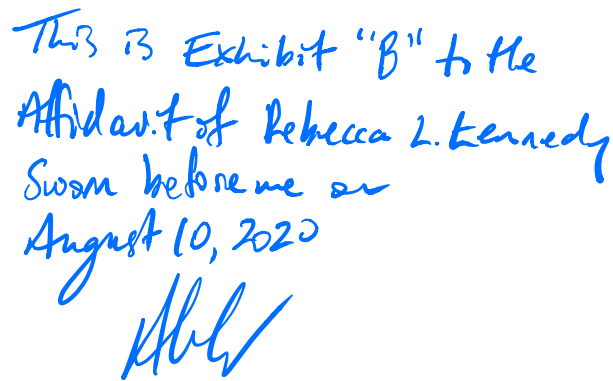 This is Exhibit "B" to the
Affidavit of Rebecca L. Kennedy
Sworn before me on
August 10, 2020